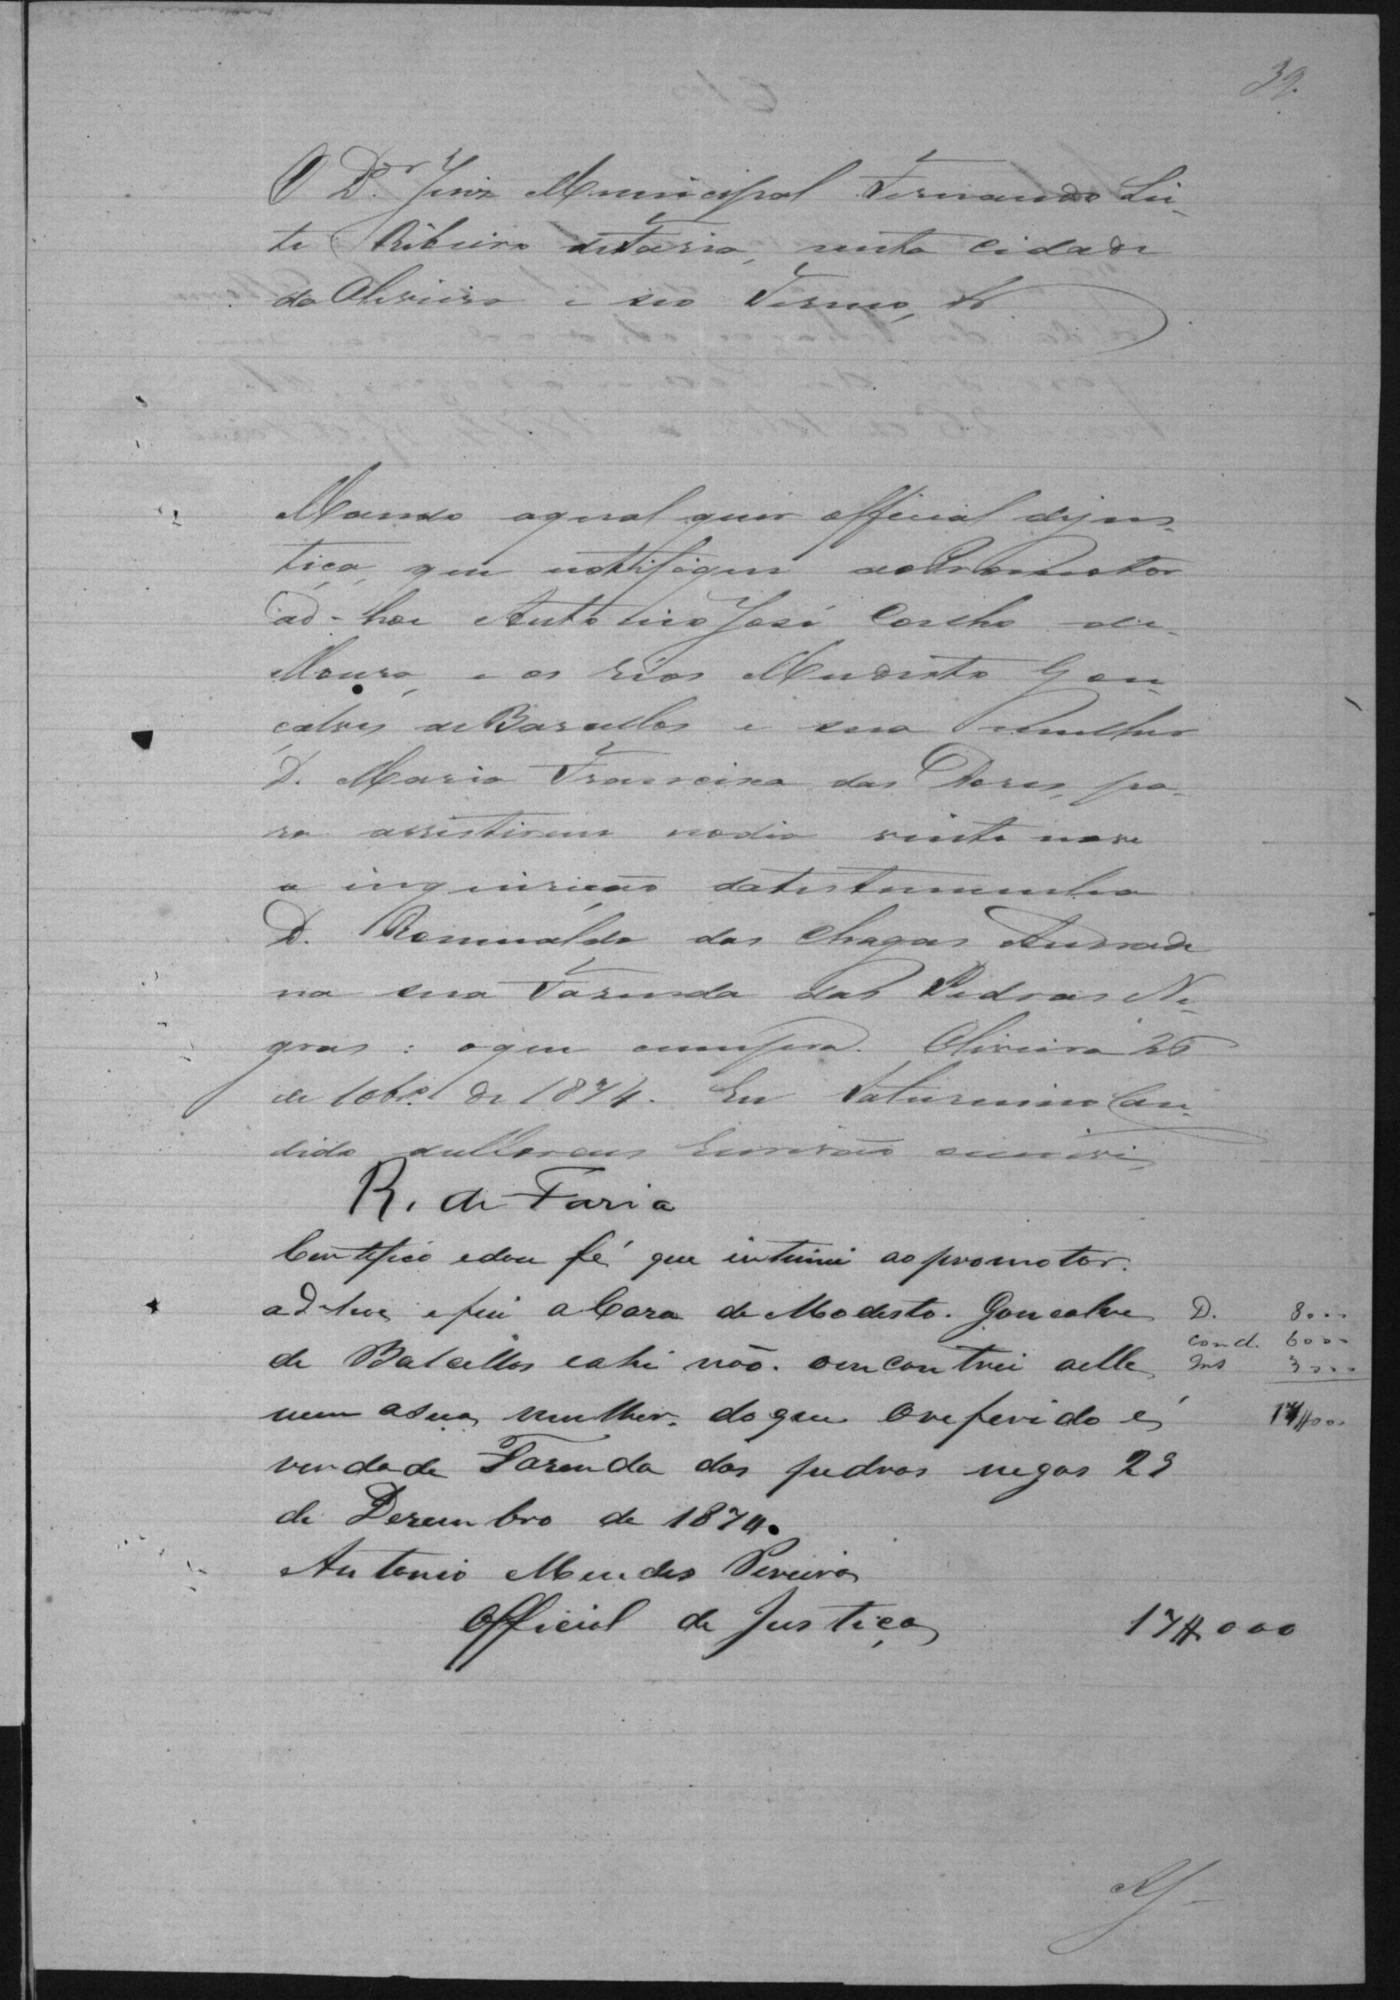 39.
O Dr. Juiz Municipal Fernando Lei-
te Ribeiro de Faria, nesta cidade
da Oliveira e seo Termo, &
Mando aqual quer official dejus-
tiça, que notifique ao Promotor
ad-hoc Antonio José Coelho de
Moura, e os réos Modesto Gon-
çalves de Barcellos e sua mulher
D. Maria Francisca das Dores, pa-
ra assistirem nodia vinte nove
a inquirição datestemunha
D. Romualda das Chagas Andrade
na sua Fazenda das Pedras Ne-
gras: oque cumpra. Oliveira 26
de 10bro. de 1874. Eu Saturnino Can-
dido de Escrivão escrivi
R. de Faria
Certefico edou fé que intimei ao promotor.
ad-hoc e fui a Caza de Modesto. Goncalve
de Balcellos eahi não. oencontrei aelle
nem asua mulher. doque Oreferido é
verdade Fazenda das pedras negas 29
de Dezembro de 1874.
Antonio Mendes Pereira
Official de Justiça
D. 8000
cond. 6000
3000
17#000
17#000